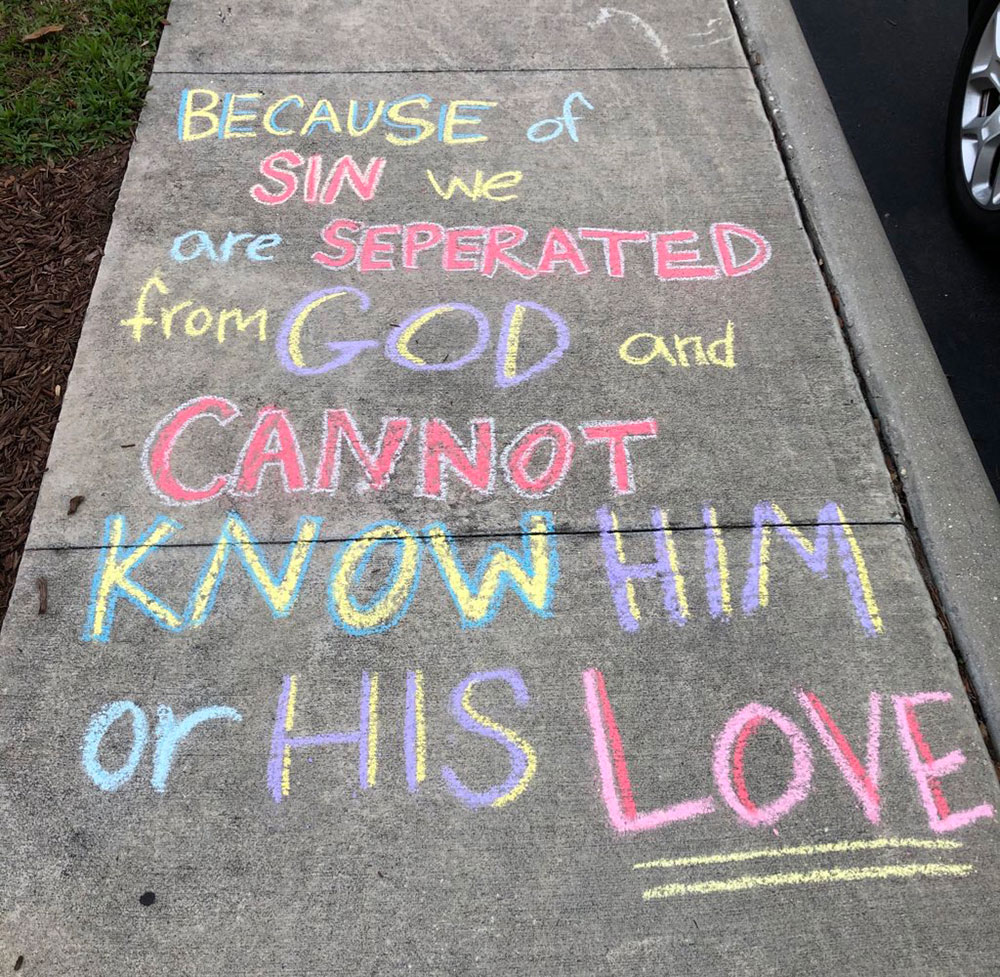 BECAUSE of
SIN we
are SEPERATED
from GOD and
CANNOT
KNOW HIM
or HIS LOVE